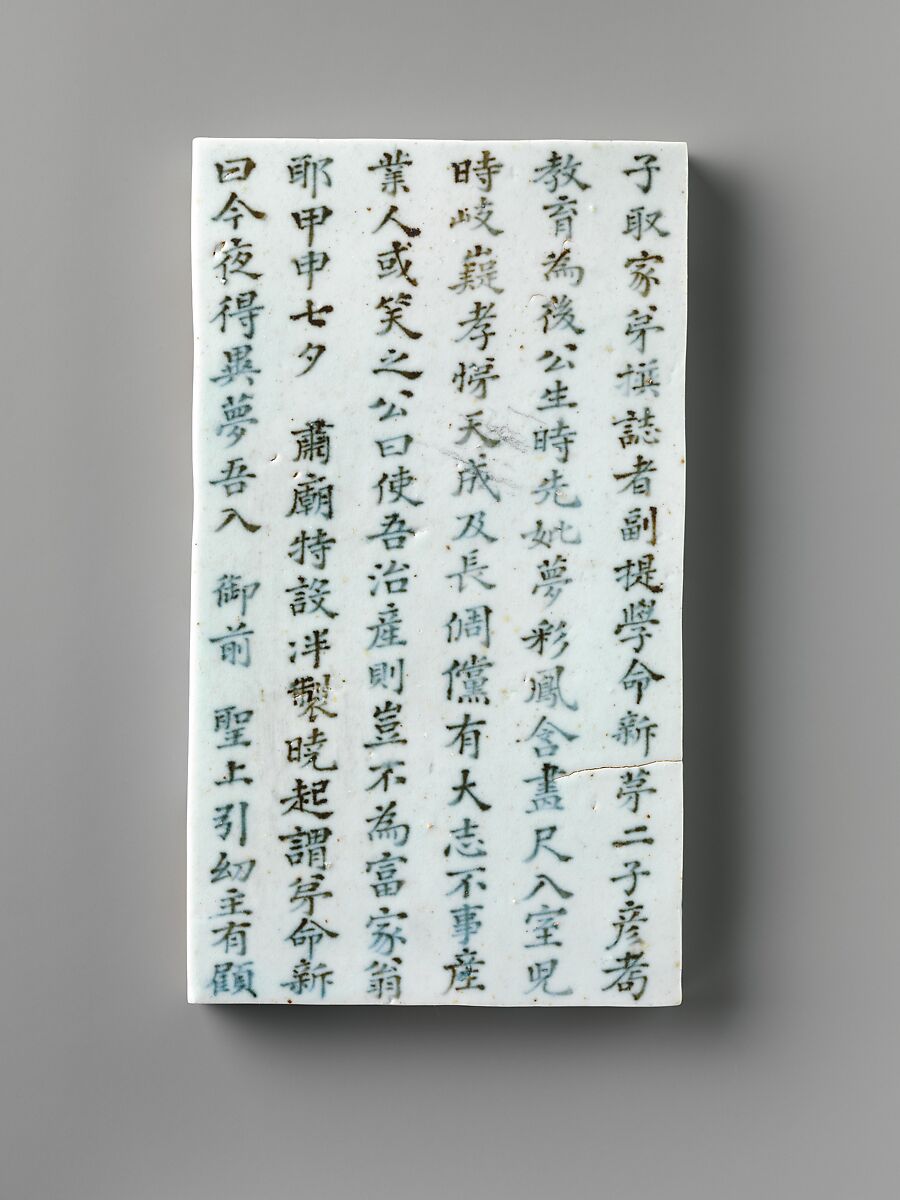 子取家苐撰誌者副提學命新苐二子彦耇
教育為後公生時先妣夢彩鳳含畫尺入室兒
時岐嶷孝悌天成及長倜儻有大志不事産
業人或笑之公曰使吾治産則豈不為富家翁
耶甲申七夕 肅廟特設泮製曉起謂苐命新
曰今夜得異夢吾入 御前 聖上引幼主有顧